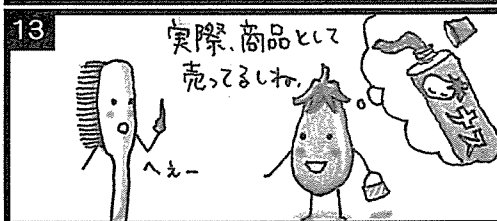 13
実際、商品として
売ってるしね。
へぇー
ナス